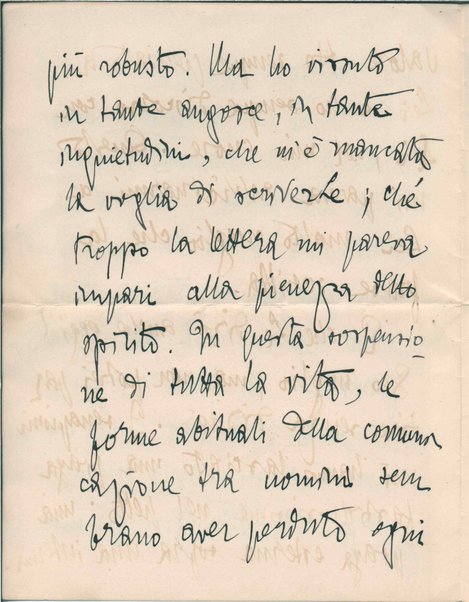 più robusto. Ma ho vissuto
in tante angosce, in tante
inquietudini, che m'è mancata
la voglia di scriverle; ché
troppo la lettera mi pareva
impari alla pienezza dello
spirito. In questa sospensio-
ne di tutta la vita, le
forme abituali della comuni
cazione tra uomini sem
brano aver perduto ogni